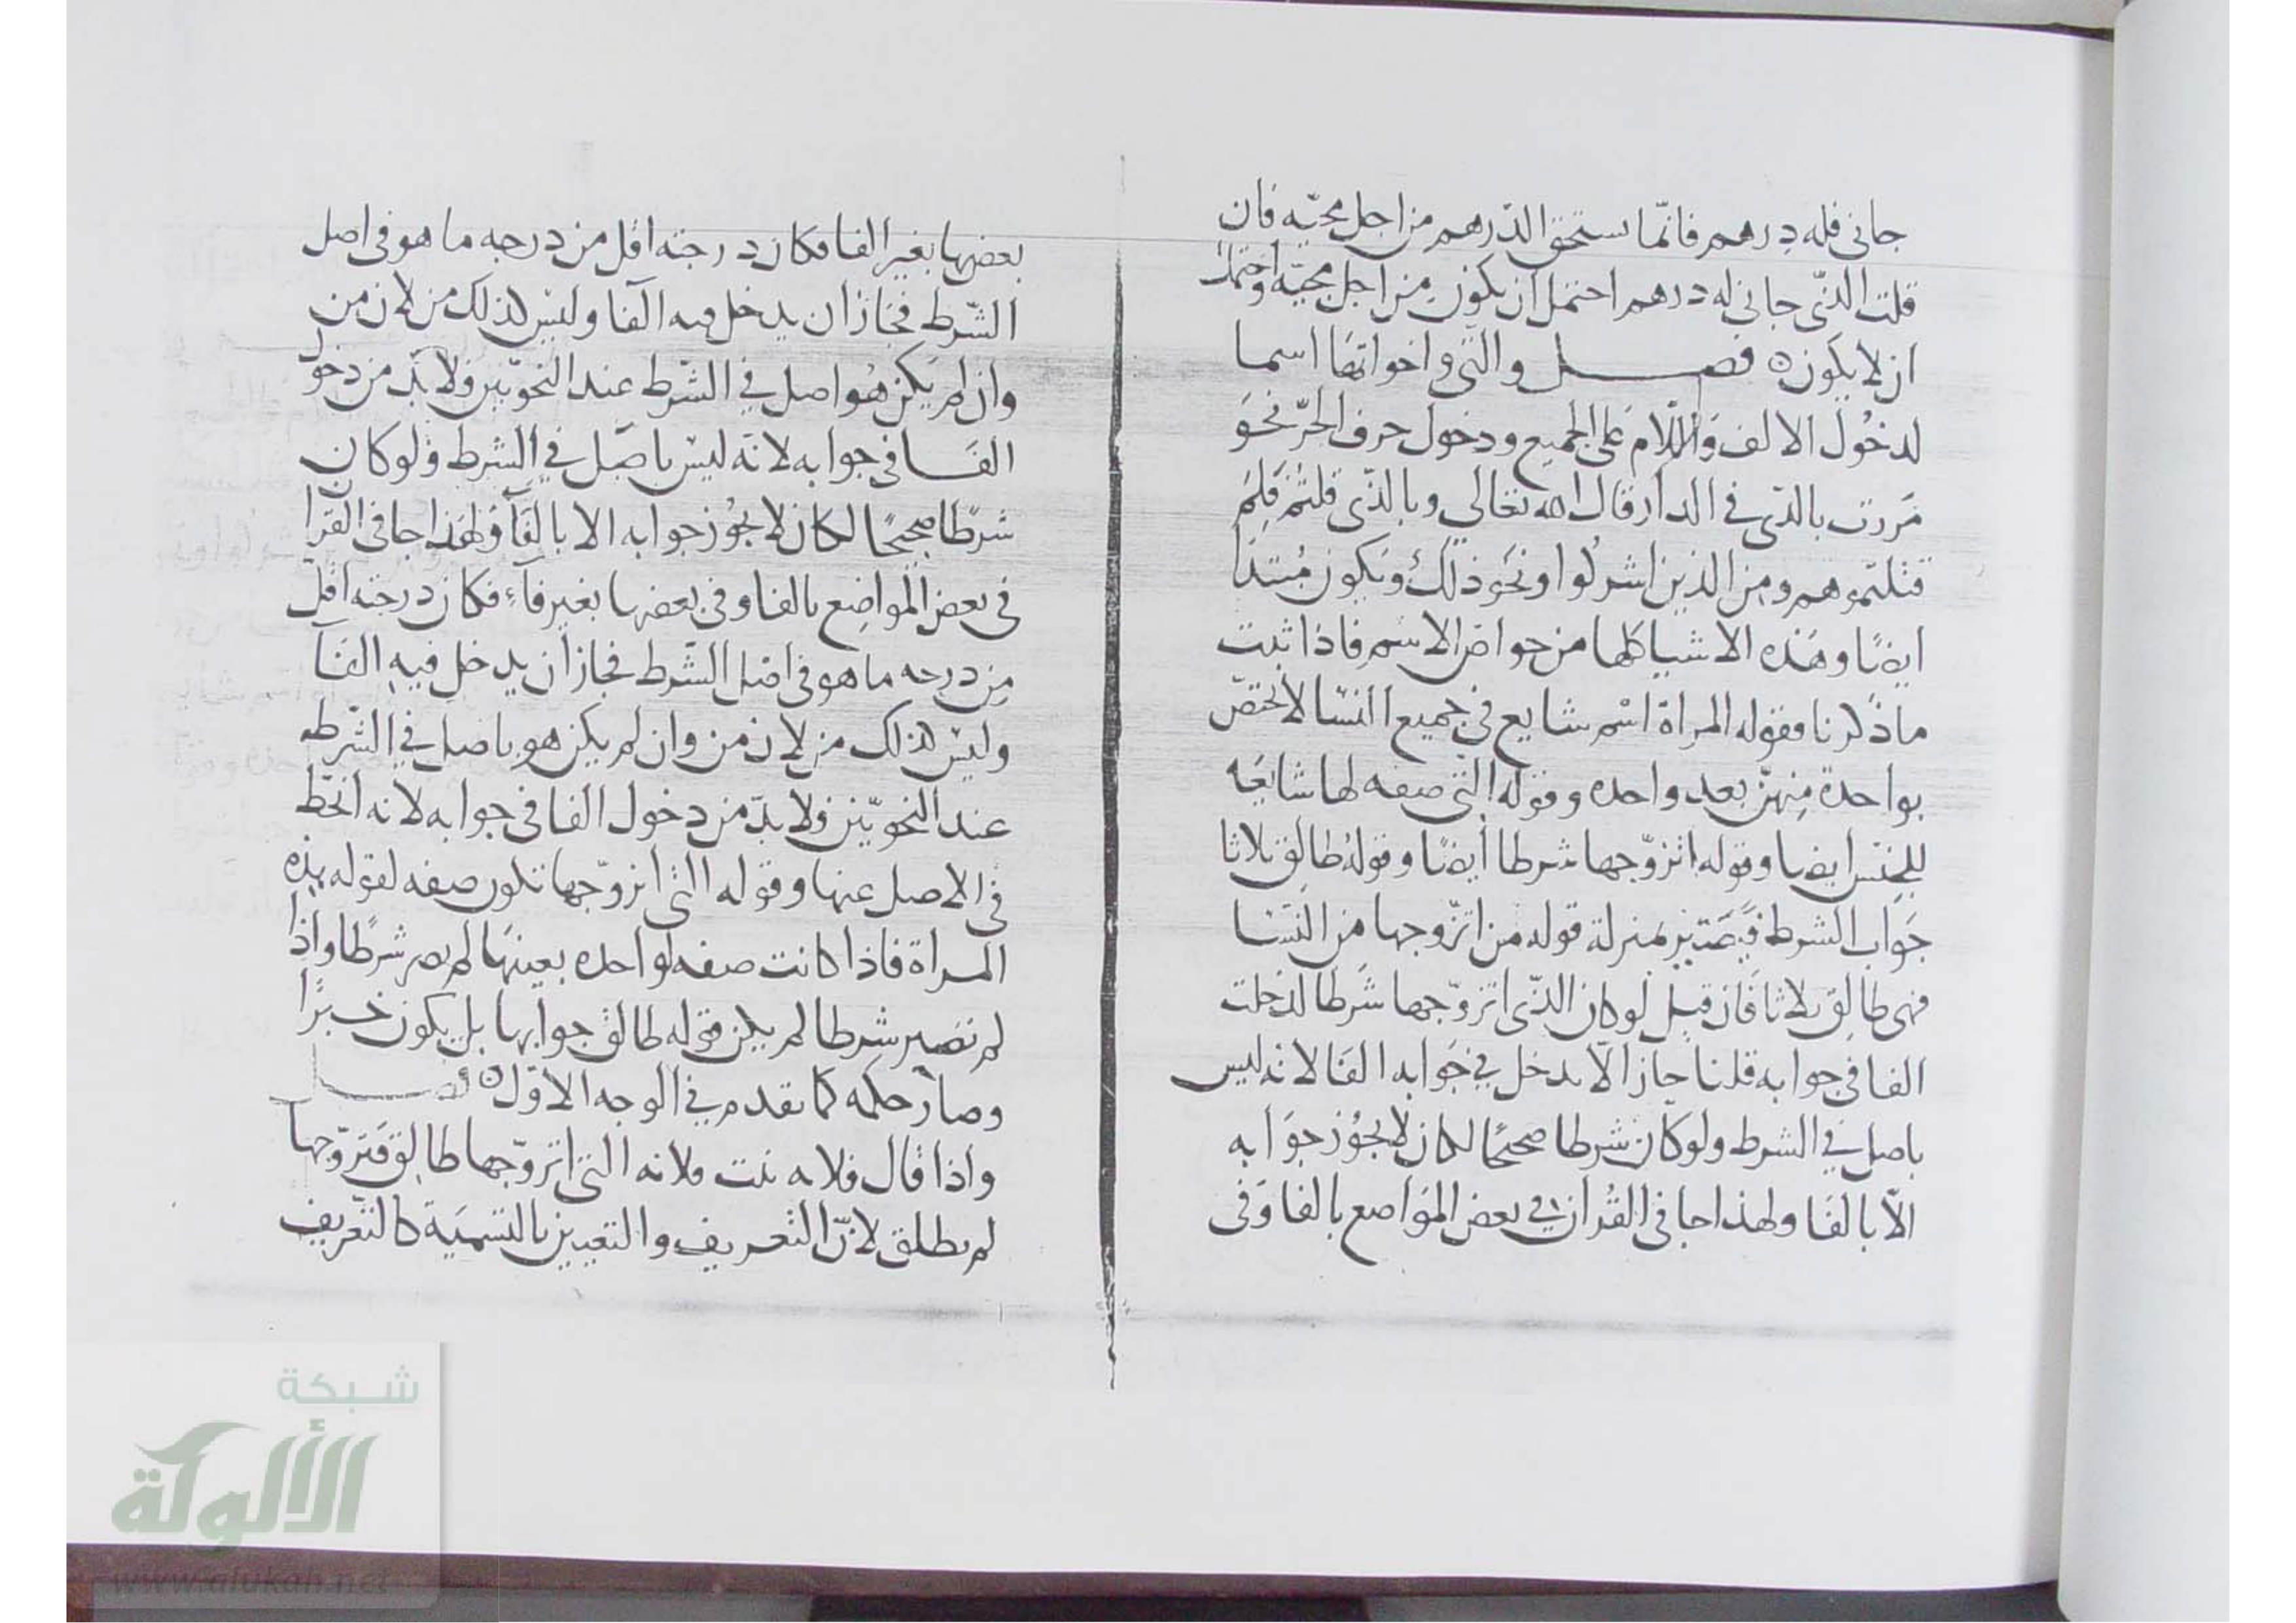 جانى فله درهم فانّما يستحق الدّرهم من اجل مجيّه فان
قلت الذّى جانى له درهم احتمل ان يكون من اجل مجيّه واحتمل
ان لا يكون ه فصل والتى واخواتها اسما
لدخول الالف واللام على الجميع ودخول حرف الجرّ نحو
مررت بالذى فى الدار قال الله تعالى وبالذّى قلتم فلم
قتلتموهم ومن الذين اشركوا ونحو ذلك ويكون مبتدا
ايضًا وهذه الاشيا كلها من خواص الاسم فاذا ثبت
ما ذكرنا فقوله المراة اسم شايع فى جميع النسا لا تختصّ
بواحدة منهنّ بعد واحده وقوله التى صفه لها شايعه
للجنس ايضا وقوله اتزوّجها شرطا ايضًا وقوله طالق ثلاثا
جواب الشرط فيصير بمنزلة قوله من اتزوجها من النسا
فهى طالق ثلاثا فان قيل لو كان الذّى اتزوّجها شرطا لدخلت
الفا فى جوابه قلنا جاز الّا يدخل فى جوابه الفا لانه ليس
باصل فى الشرط ولو كان شرطا صحيحًا لكان لا يجوز جوابه
الّا بالفا ولهذا جا فى القران فى بعض المواضع بالفا وفى
بعضها بغير الفا فكان درجته اقل من درجه ما هو فى اصل
الشّرط فجاز ان يدخل فيه الفا وليس كذلك من لان من
وان لم يكن هو اصل فى الشّرط عند النحوّيين ولا بدّ من دخول
الفا فى جوابه لانه ليس باصل فى الشرط ولو كان
شرطا صحيحًا لكان لا يجوز جوابه الا بالفآ ولهذا جا فى القرا
فى بعض المواضع بالفا وفى بعضها بغير فآء فكان درجته اقل
من درجه ما هو فى اصل الشّرط فجاز ان يدخل فيه الفآ
وليس كذلك من لان من وان لم يكن هو باصل فى الشّرط
عند النحوّيين ولا بدّ من دخول الفا فى جوابه لانه انحطّ
فى الاصل عنها وقوله التى اتزوّجها تكون صفه لقوله هذه
المراة فاذا كانت صفه لواحده بعينها لم يصر شرطًا واذا
لم تصير شرطا لم يكن قوله طالق جوابها بل يكون خبرًا
وصار حكمه كما تقدم فى الوجه الاوّل ه فصل
واذا قال فلانه بنت فلانه التى اتزوّجها طالق فتزوّجها
لم يطلق لانّ التّعريف والتعيين بالتسميّة كالتّعريف
شبكة
الألوكة
www.alukah.net